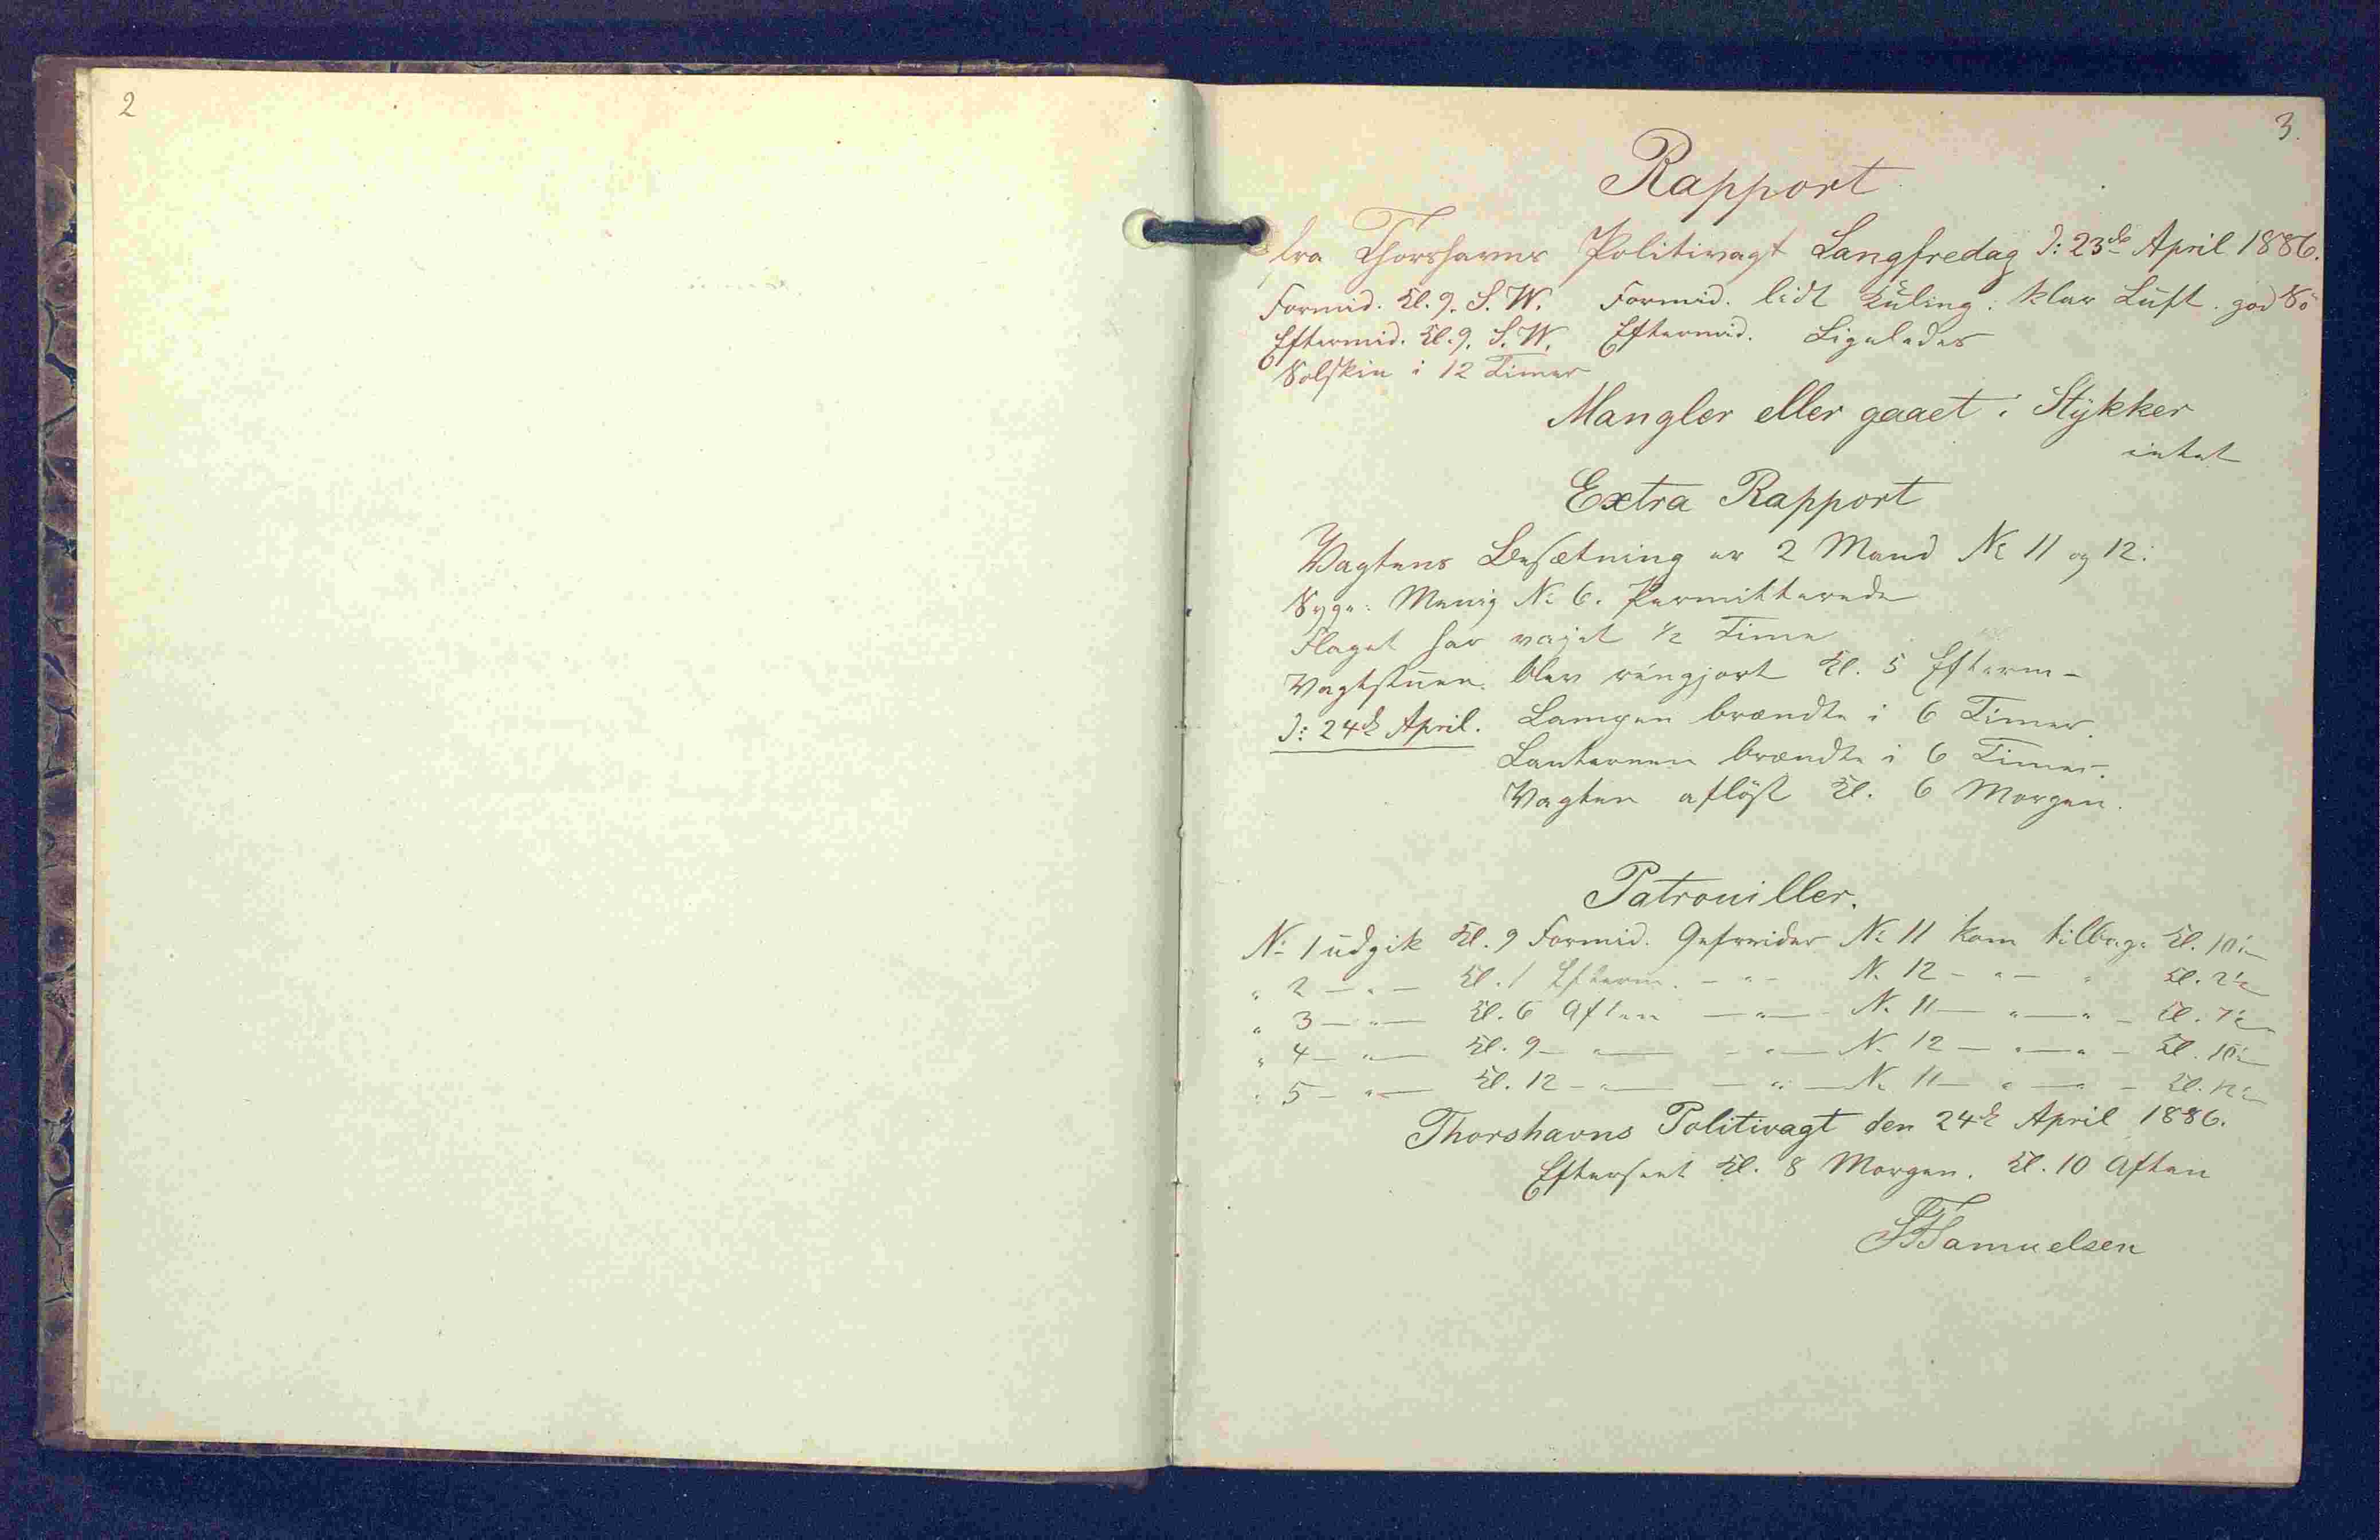 2
3.
Rapport
fra Thorshavns Politivagt Langfredag D: 23de April 1886.
Formid. Kl. 9. S. W. Formid. lidt Kuling. klar Luft. god Sö
Eftermid. Kl. 9. S. W. Eftermid. Ligeledes
Solskin i 12 Timer
Mangler eller gaaet i Stykker
intet
Extra Rapport
Vagtens Besætning er 2 Mand No 11 og 12.
Syge: Menig No 6. Permitterede
Flaget har vajet 1/2 Time
Vagtstuen blev rengjort Kl. 5 Efterm-
D: 24de April. Lampen brændte i 6 Timer.
Lanternen brændte i 6 Timer.
Vagten aflöst Kl. 6 Morgen.
Patrouiller.
No 1 udgik Kl. 9 Formid. Gefreider No 11 kom tilbage Kl. 10½
" 2 — " — Kl. 1 Efterm. — " — No 12 — " — " Kl. 2½
" 3 — " — Kl. 6 Aften — " — No 11 — " — " — Kl. 7½
" 4 — " — Kl. 9 — " — — " — No 12 — " — " — Kl. 10½
" 5 — " — Kl. 12 — " — — " — No 11 — " — " — Kl.
Thorshavns Politivagt den 24de April 1886.
Efterseet Kl. 8 Morgen. Kl. 10 Aften
Samuelsen